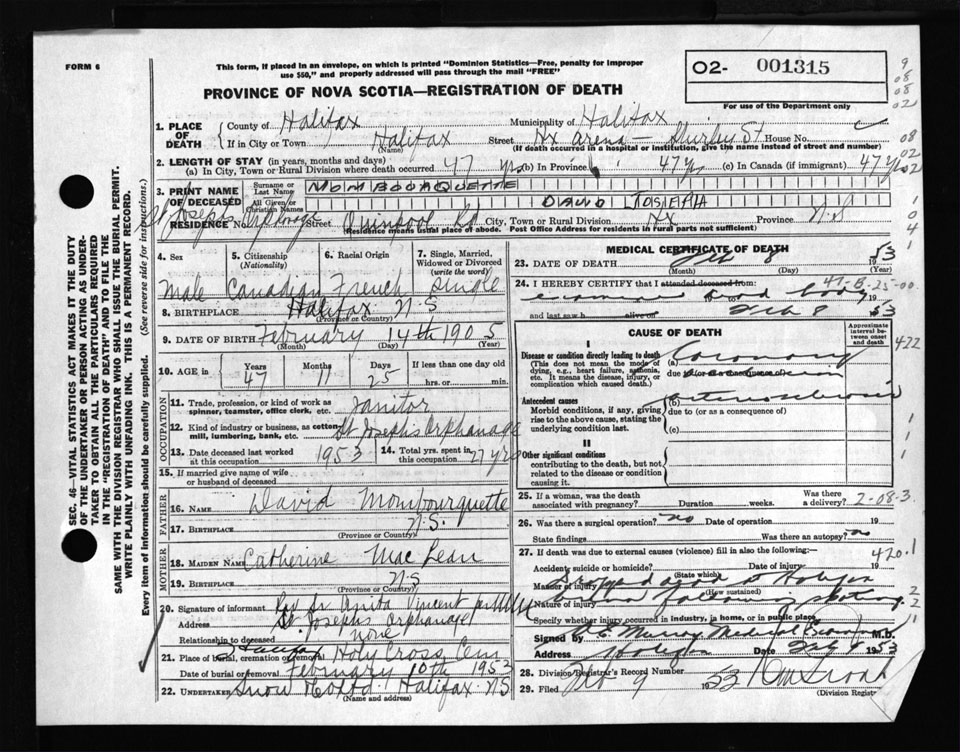 FORM 6
This form, if placed in an envelope, on which is printed "Dominion Statistics—Free, penalty for improper
use $50," and properly addressed will pass through the mail "FREE"
O2- 001315
PROVINCE OF NOVA SCOTIA—REGISTRATION OF DEATH
For use of the Department only
9
08
08
02
1. PLACE OF DEATH
County of Halifax Municipality of Halifax
If in City or Town Halifax Street Hx arena Shirley St House No.
(Name) (If death occurred in a hospital or institution, give the name instead of street and number)
08
02
02
2. LENGTH OF STAY (in years, months and days)
(a) In City, Town or Rural Division where death occurred 47 yrs (b) In Province 47 yr (c) In Canada (if immigrant) 47 yr
3. PRINT NAME OF DECEASED
Surname or Last Name MOMBOURQUETTE
All Given or Christian Names DAVID JOSEPH
1
0
4
RESIDENCE No. St Josephs Orphanage Street Quinpool Rd City, Town or Rural Division Hx Province N.S
(Residence means usual place of abode. Post Office Address for residents in rural parts not sufficient)
4. Sex
5. Citizenship (Nationality)
6. Racial Origin
7. Single, Married, Widowed or Divorced (write the word)
Male Canadian French Single
8. BIRTHPLACE Halifax N.S
(Province or Country)
9. DATE OF BIRTH February 14th 1905
(Month) (Day) (Year)
10. AGE in Years Months Days If less than one day old
47 11 25 hrs. or min.
OCCUPATION
11. Trade, profession, or kind of work as spinner, teamster, office clerk, etc. Janitor
12. Kind of industry or business, as cotton mill, lumbering, bank, etc. St Josephs Orphanage
13. Date deceased last worked at this occupation 1953
14. Total yrs. spent in this occupation 27 yrs
15. If married give name of wife or husband of deceased
FATHER
16. NAME David Mombourquette
17. BIRTHPLACE N.S.
(Province or Country)
MOTHER
18. MAIDEN NAME Catherine MacLean
19. BIRTHPLACE N.S
(Province or Country)
20. Signature of informant Rev Sr Anita Vincent
Address St. Josephs Orphanage
Relationship to deceased none
21. Place of burial, cremation or removal Halifax Holy Cross Cem
Date of burial or removal February 10th 1953
22. UNDERTAKER Snow Halifax NS
(Name and address)
MEDICAL CERTIFICATE OF DEATH
23. DATE OF DEATH Feb 8 1953
(Month) (Day) (Year)
24. I HEREBY CERTIFY that I attended deceased from: 47-8-25-00
examined dead body 19
and last saw h alive on Feb 8 1953
CAUSE OF DEATH
Approximate interval between onset and death
472
I
Disease or condition directly leading to death
(This does not mean the mode of dying, e.g., heart failure, asthenia, etc. It means the disease, injury, or complication which caused death.)
(a) Coronary
due to (or as a consequence of)
Antecedent causes
Morbid conditions, if any, giving rise to the above cause, stating the underlying condition last.
(b) arteriosclerosis
due to (or as a consequence of)
(c)
II
Other significant conditions
contributing to the death, but not related to the disease or condition causing it.
1
1
1
25. If a woman, was the death associated with pregnancy? Duration weeks. Was there a delivery? 2-08-3
26. Was there a surgical operation? no Date of operation 19
State findings Was there an autopsy? no
27. If death was due to external causes (violence) fill in also the following:— 420.1
Accident, suicide or homicide? Date of injury 19
(State which)
Manner of injury Dropped dead
(How sustained)
Nature of injury following skating
2
2
1
Specify whether injury occurred in industry, in home, or in public place
Signed by Murray Medical M.D.
Address Halifax Date Feb 9 1953
28. Division Registrar's Record Number
29. Filed Feb 9 1953
(Division Registrar)
SEC. 46—VITAL STATISTICS ACT MAKES IT THE DUTY
OF THE UNDERTAKER OR PERSON ACTING AS UNDER-
TAKER TO OBTAIN ALL THE PARTICULARS REQUIRED
IN THE "REGISTRATION OF DEATH" AND TO FILE THE
SAME WITH THE DIVISION REGISTRAR WHO SHALL ISSUE THE BURIAL PERMIT.
WRITE PLAINLY WITH UNFADING INK. THIS IS A PERMANENT RECORD.
Every item of information should be carefully supplied. (See reverse side for instructions.)